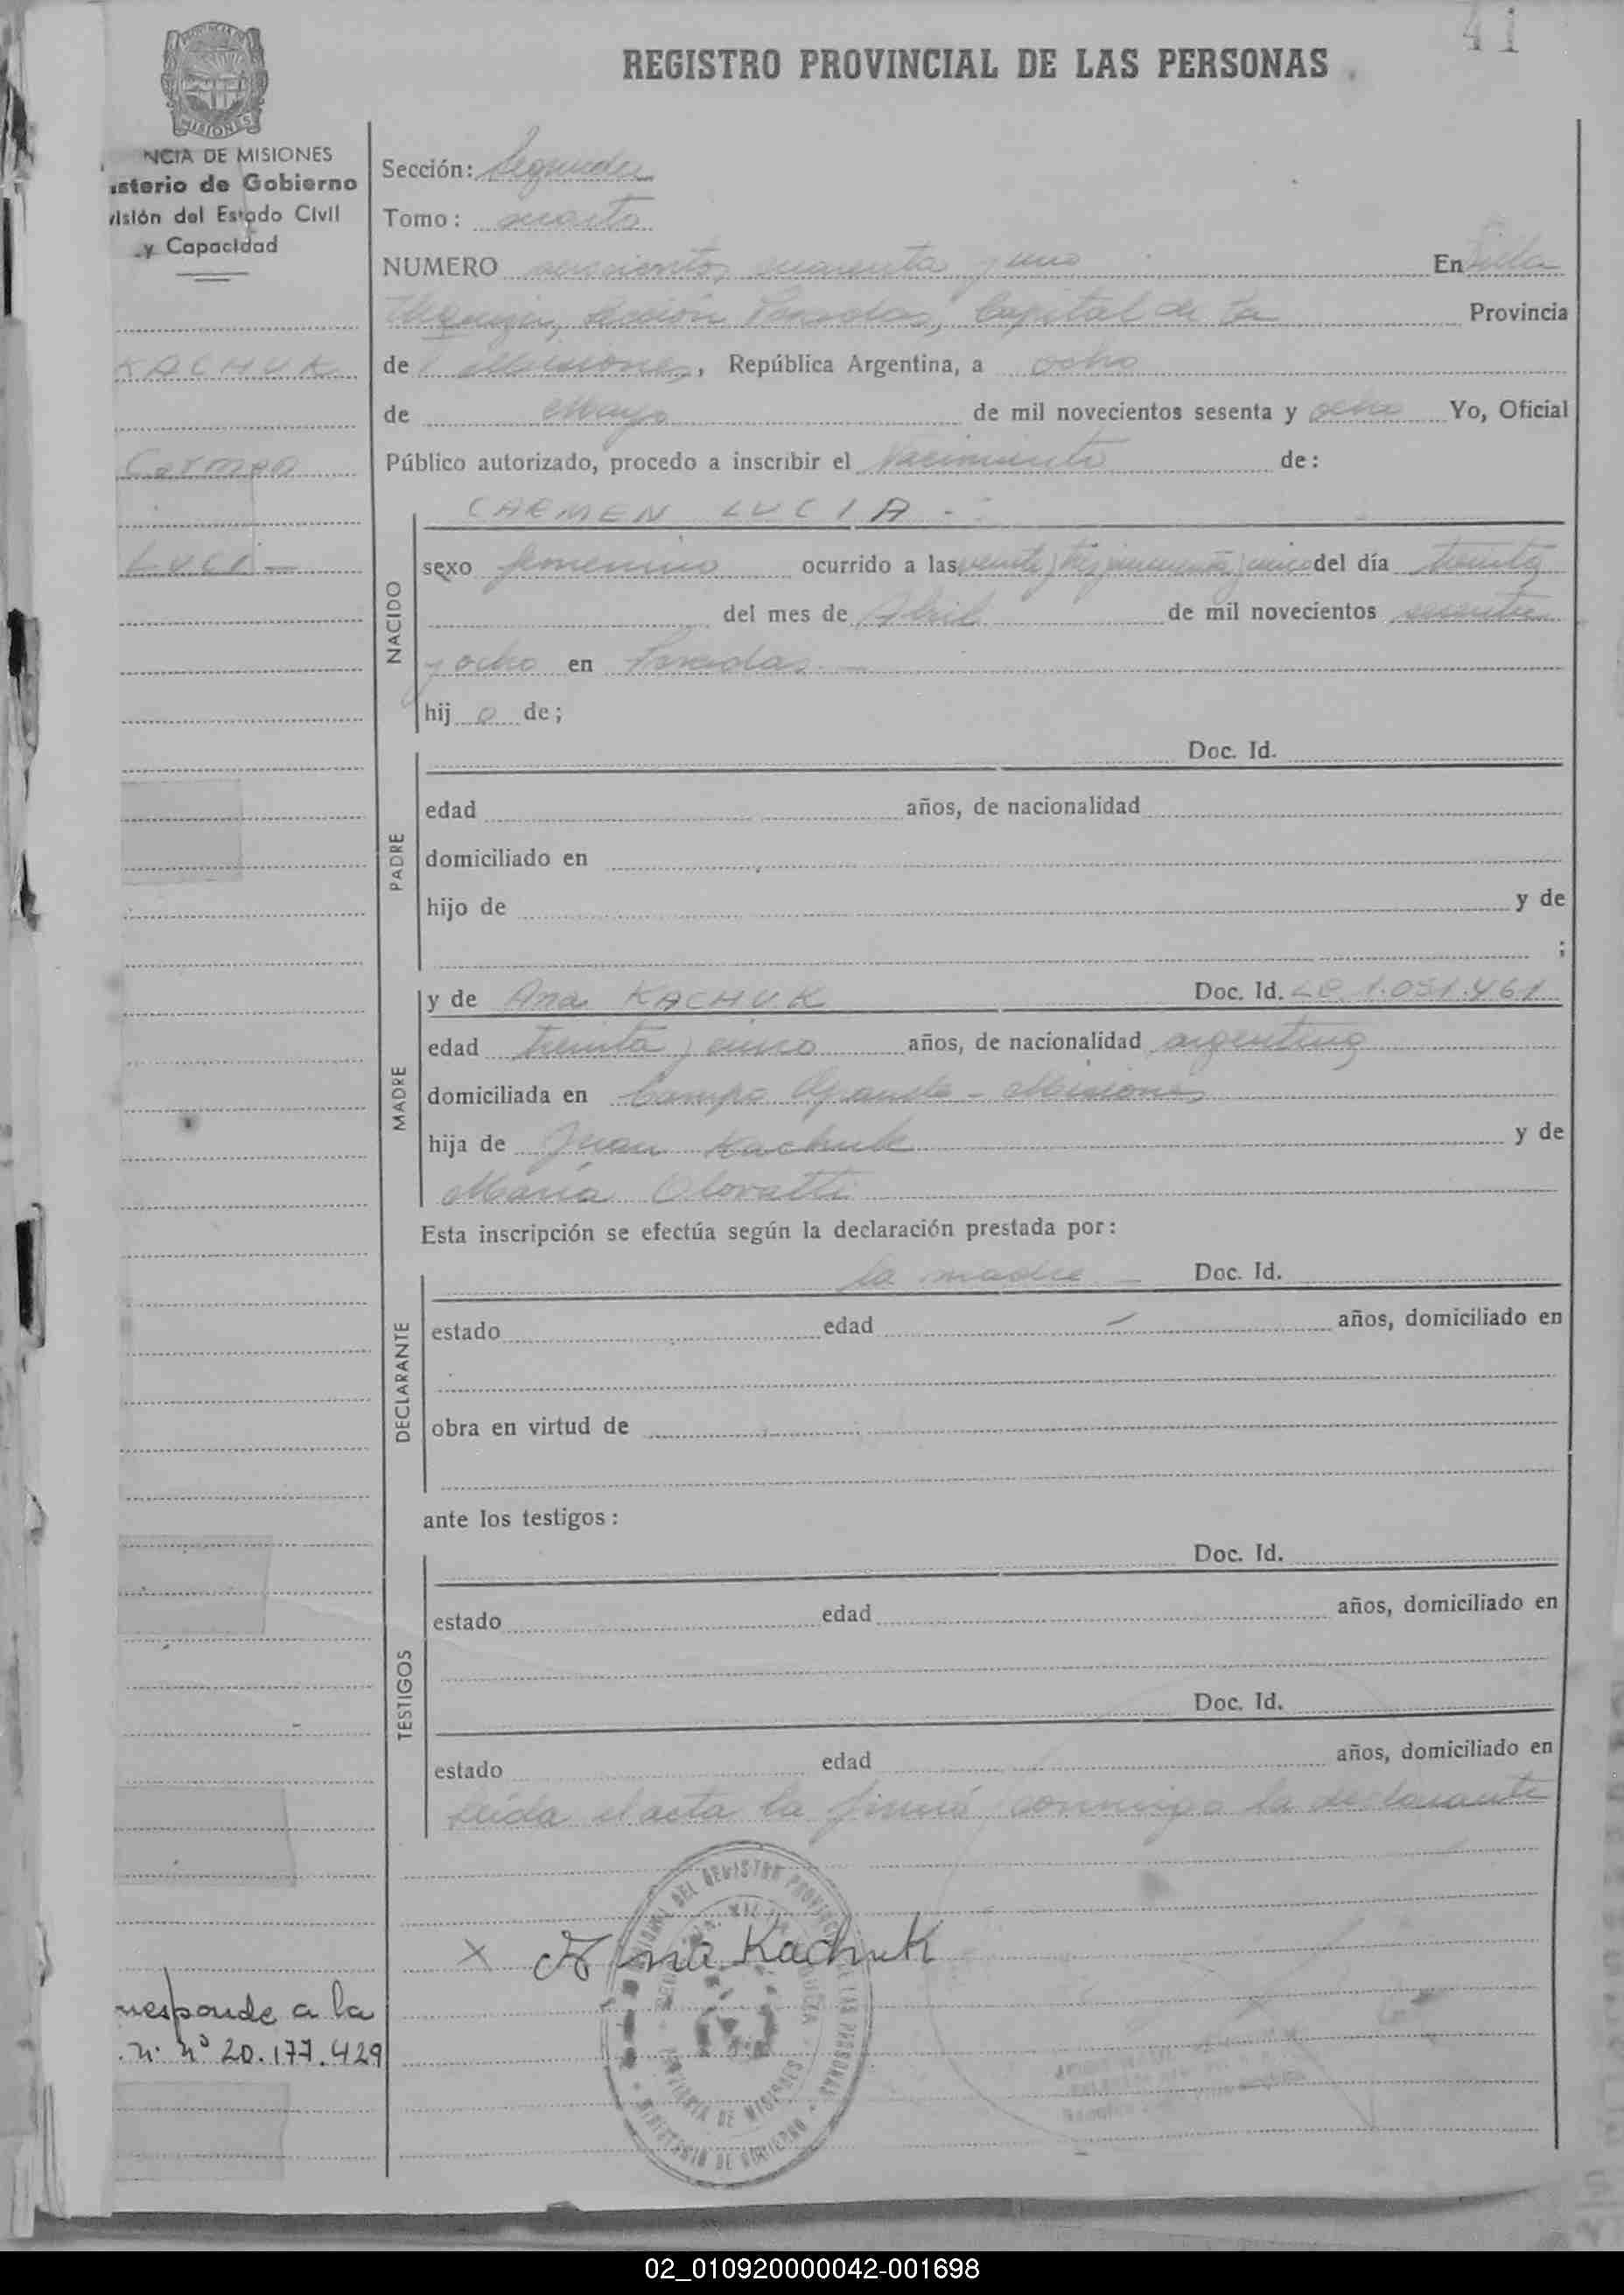 41
REGISTRO PROVINCIAL DE LAS PERSONAS
MISIONES
NCIA DE MISIONES
isterio de Gobierno
visión del Estado Civil
y Capacidad
KACHUK
Carmen
Luci
Sección: Segunda
Tomo: cuarto
NUMERO seiscientos cuarenta y uno En Villa
Urquiza, Sección Posadas, Capital de la Provincia
de Misiones, República Argentina, a ocho
de Mayo de mil novecientos sesenta y ocho Yo, Oficial
Público autorizado, procedo a inscribir el Nacimiento de:
CARMEN LUCIA -
NACIDO
sexo femenino ocurrido a las veinte y tres y cincuenta y cinco del día treinta
del mes de Abril de mil novecientos sesenta
y ocho en Posadas
hij o de;
PADRE
Doc. Id.
edad años, de nacionalidad
domiciliado en
hijo de y de
;
MADRE
y de Ana KACHUK Doc. Id. LC. 1.051.461
edad treinta y cinco años, de nacionalidad argentina
domiciliada en Campo Grande - Misiones
hija de Juan Kachuk y de
María Olovatti
Esta inscripción se efectúa según la declaración prestada por:
DECLARANTE
la madre - Doc. Id.
estado edad años, domiciliado en
obra en virtud de
ante los testigos:
TESTIGOS
Doc. Id.
estado edad años, domiciliado en
Doc. Id.
estado edad años, domiciliado en
Leída el acta la firmó conmigo la declarante
X Ana Kachuk
DEL REGISTRO PROVINCIAL DE LAS PERSONAS
PROVINCIA DE MISIONES
MINISTERIO DE GOBIERNO
rresponde a la
.n. nº 20.177.429
02_010920000042-001698